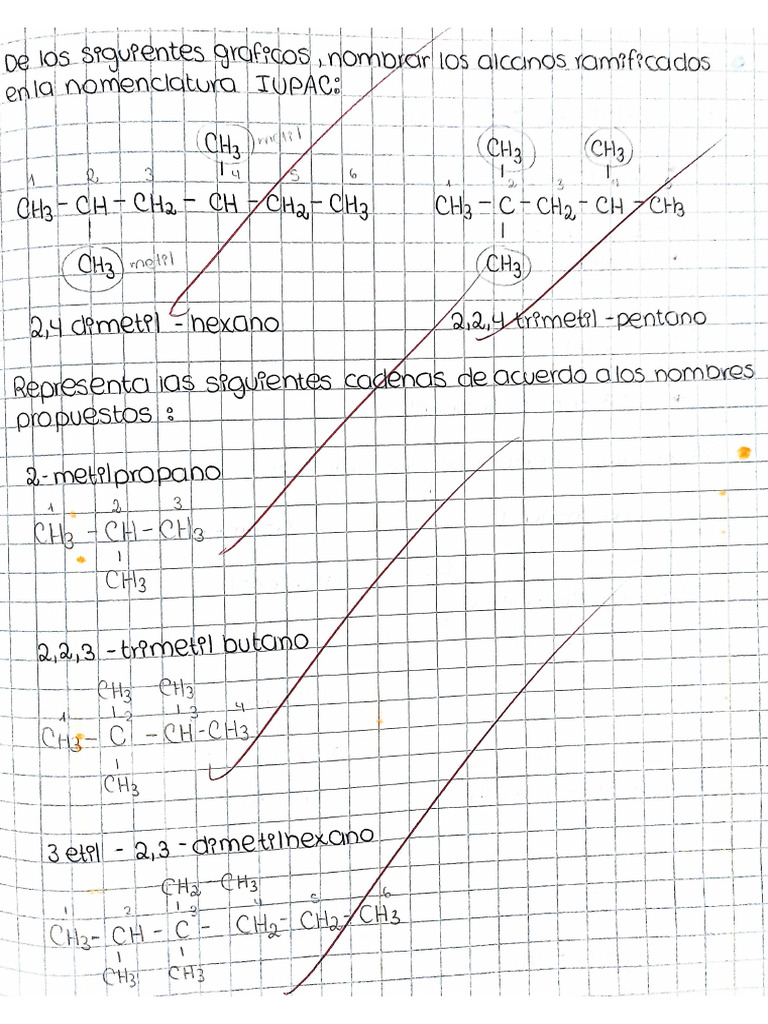 De los siguientes graficos, nombrar los alcanos ramificados
en la nomenclatura IUPAC:
CH3 metil
1 2 3 4 5 6
CH3 - CH - CH2 - CH - CH2 - CH3
CH3 metil
2,4 dimetil - hexano
CH3 CH3
1 2 3 4 5
CH3 - C - CH2 - CH - CH3
CH3
2,2,4 trimetil - pentano
Representa las siguientes cadenas de acuerdo a los nombres
propuestos :
2-metilpropano
1 2 3
CH3 - CH - CH3
CH3
2,2,3 - trimetil butano
CH3 CH3
1 2 3 4
CH3 - C - CH - CH3
CH3
3 etil - 2,3 - dimetilhexano
CH2 - CH3
1 2 3 4 5 6
CH3 - CH - C - CH2 - CH2 - CH3
CH3 CH3